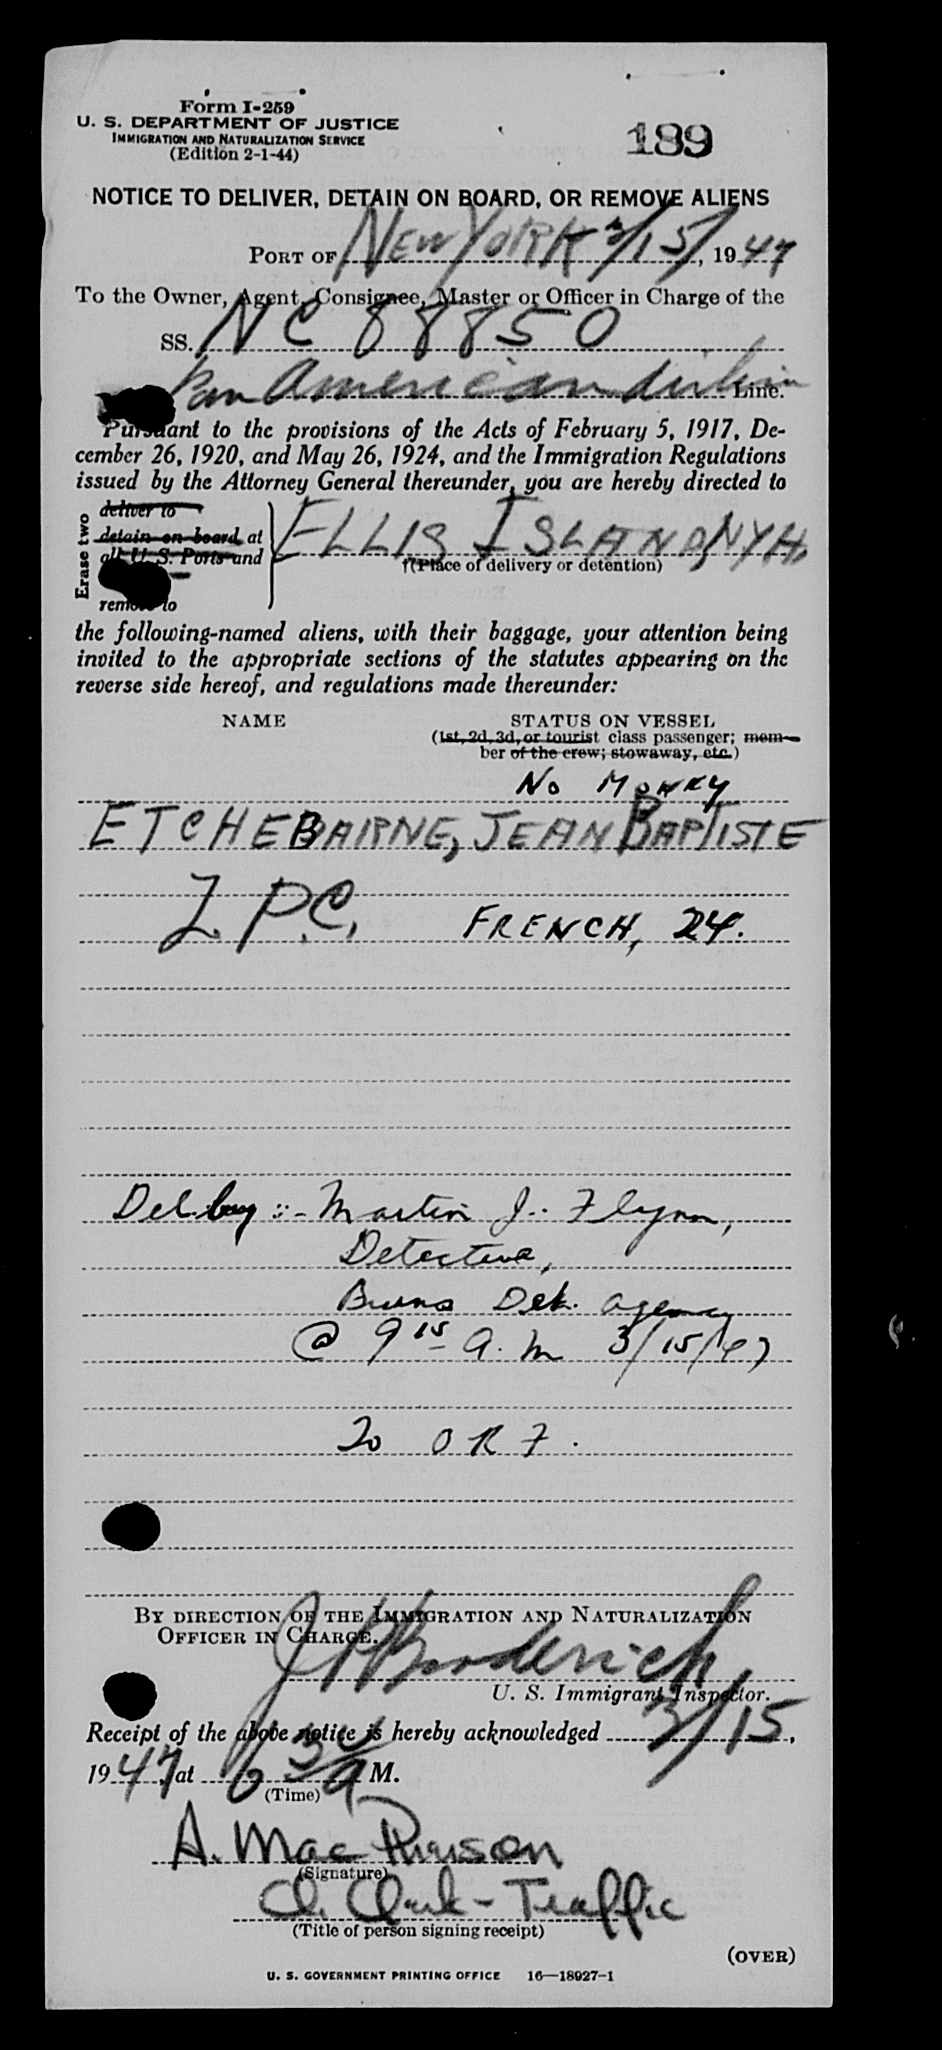 Form I-259
U. S. DEPARTMENT OF JUSTICE
IMMIGRATION AND NATURALIZATION SERVICE
(Edition 2-1-44)
189
NOTICE TO DELIVER, DETAIN ON BOARD, OR REMOVE ALIENS
PORT OF NEW YORK 3/15/, 1947
To the Owner, Agent, Consignee, Master or Officer in Charge of the
SS. NC 88850
Pan American Line.
Pursuant to the provisions of the Acts of February 5, 1917, De-
cember 26, 1920, and May 26, 1924, and the Immigration Regulations
issued by the Attorney General thereunder, you are hereby directed to
Erase two
deliver to
detain on board at
all U. S. Ports and
remove to
ELLIS ISLAND, NYH,
†(Place of delivery or detention)
the following-named aliens, with their baggage, your attention being
invited to the appropriate sections of the statutes appearing on the
reverse side hereof, and regulations made thereunder:
NAME STATUS ON VESSEL
(1st, 2d, 3d, or tourist class passenger; mem-
ber of the crew; stowaway, etc.)
NO MONEY
ETCHEBARNE, JEAN BAPTISTE
L.P.C. FRENCH, 24.
Del. by :- Martin J. Flynn,
Detective,
Burns Det. agency
@ 9 15 a.m 3/15/47
To ORF.
BY DIRECTION OF THE IMMIGRATION AND NATURALIZATION
OFFICER IN CHARGE.
Broderick
U. S. Immigrant Inspector.
Receipt of the above notice is hereby acknowledged 3/15,
1947, at 6 30 A M.
(Time)
A. MacPherson
(Signature)
Clerk - Traffic
(Title of person signing receipt)
(OVER)
U. S. GOVERNMENT PRINTING OFFICE 16—18927-1